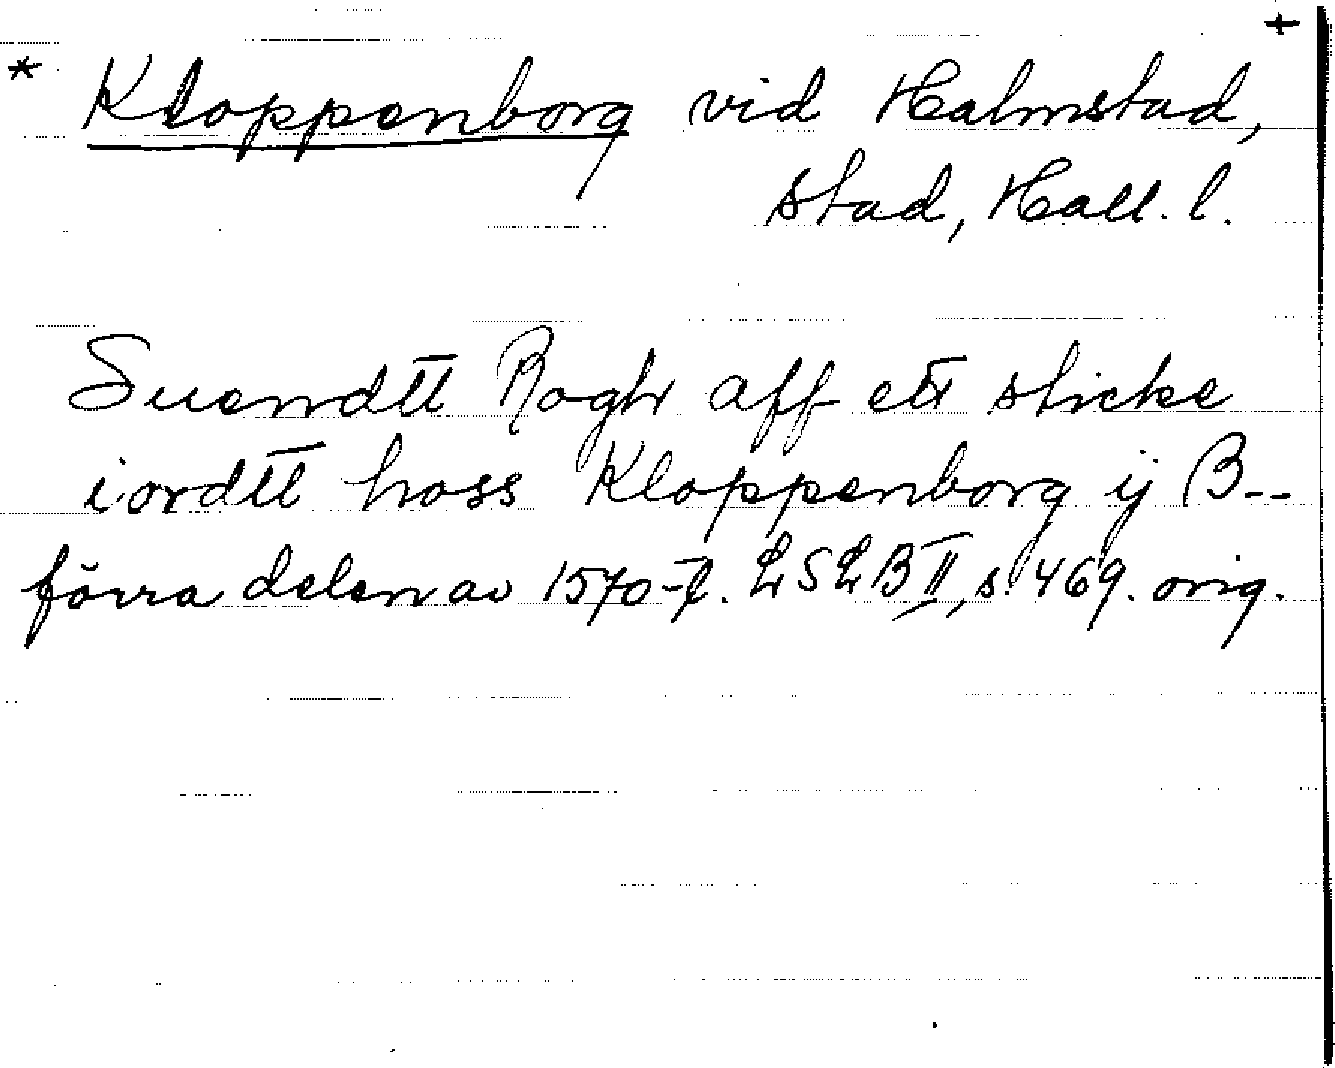 +
* Kloppenborg vid Halmstad,
stad, Hall. l.
Suendtt Rogh aff ett sticke
iordtt hoss Kloppenborg ij B--
förra delen av 1570-t. LSLB II, s. 469. orig.